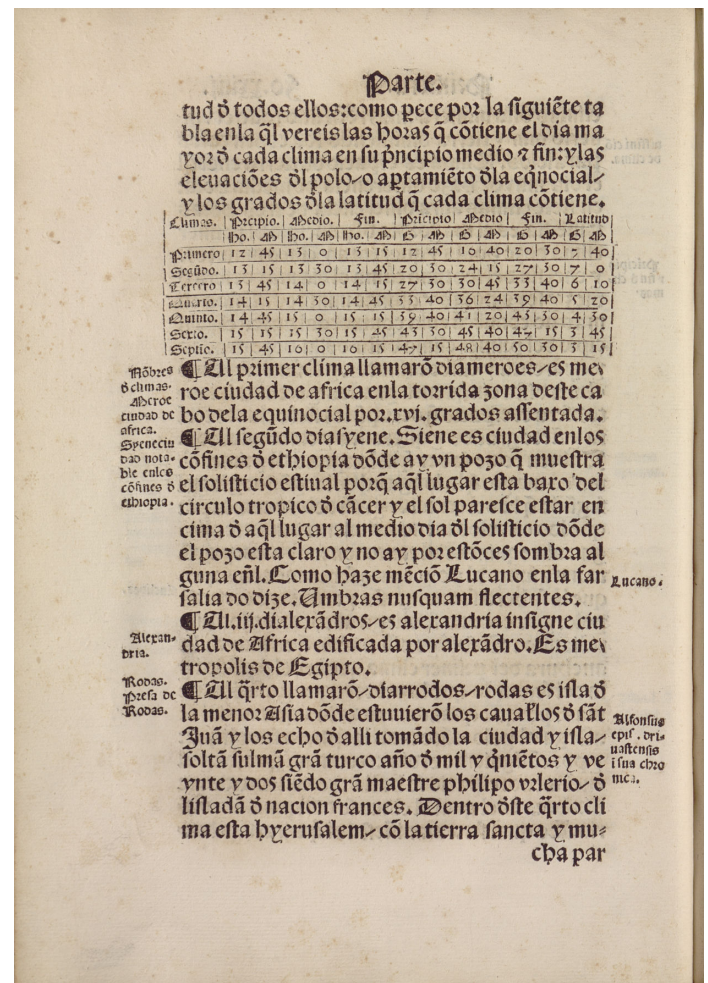 Parte.
tud đ todos ellos:como ꝑece por la siguiẽte ta
bla enla q̃l vereis las horas q̃ cõtiene el dia ma
yor đ cada clima en su p̃ncipio medio ⁊ fin:y las
eleuaciões đl polo/o aꝑtamiẽto đla eq̃nocial/
y los grados đla latitud q̃ cada clima cõtiene.
Climas. | Prcipio. | Medio. | Fin. | Pricipio | Medio | Fin. | Latitud
ho. | M | ho. | M | ho. | M | G | M | G | M | G | M | G | M
Primero | 12 | 45 | 13 | 0 | 13 | 15 | 12 | 45 | 16 | 40 | 20 | 30 | 7 | 40
Segũdo. | 13 | 15 | 13 | 30 | 13 | 45 | 20 | 30 | 24 | 15 | 27 | 30 | 7 | 0
Tercero | 13 | 45 | 14 | 0 | 14 | 15 | 27 | 30 | 30 | 45 | 33 | 40 | 6 | 10
Quarto. | 14 | 15 | 14 | 30 | 14 | 45 | 33 | 40 | 36 | 24 | 39 | 40 | 5 | 20
Quinto. | 14 | 45 | 15 | 0 | 15 | 15 | 39 | 40 | 41 | 20 | 43 | 30 | 4 | 30
Sexto. | 15 | 15 | 15 | 30 | 15 | 45 | 43 | 30 | 45 | 40 | 47 | 15 | 3 | 45
Septio. | 15 | 45 | 16 | 0 | 16 | 15 | 47 | 15 | 48 | 40 | 50 | 30 | 3 | 15
Nõbres
đ climas.
Meroe
ciudad de
africa.
¶ Al primer clima llamarõ diameroes/es me
roe ciudad de africa enla torrida zona deste ca
bo dela equinocial por.xvj. grados assentada.
Syeneciu
dad nota-
ble enlos
cõfines đ
ethiopia.
¶ Al segũdo diasyene. Siene es ciudad enlos
cõfines đ ethiopia dõde ay vn pozo q̃ muestra
el solisticio estiual porq̃ aq̃l lugar esta baxo del
circulo tropico đ cãcer y el sol paresce estar en
cima đ aq̃l lugar al medio dia đl solisticio dõde
el pozo esta claro y no ay por estõces sombra al
guna eñl. Como haze mẽciõ Lucano enla far
salia do dize. Umbras nusquam flectentes.
Lucano.
¶ Al.iij.dialexãdros/es alexandria insigne ciu
dad de Africa edificada por alexãdro. Es me
tropolis de Egipto.
Alexan-
dria.
Rodas.
Presa de
Rodas.
¶ Al q̃rto llamarõ/diarrodos/rodas es isla đ
la menor Asia dõde estuuierõ los cauałłos đ sãt
Juã y los echo đ alli tomãdo la ciudad y isla/
soltã sulmã grã turco año đ mil y q̃niẽtos y ve
ynte y dos siẽdo grã maestre philipo vrlerio/ đ
lisladã đ nacion frances. Dentro đste q̃rto cli
ma esta hyerusalem/ cõ la tierra sancta y mu-
cha par
Alfonsus
epis. dri-
uastensis
i sua chro
nica.